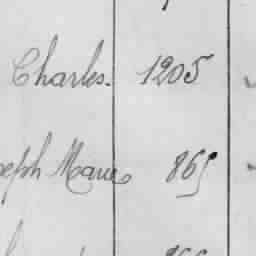 Charles. 1205
seph Marie 865